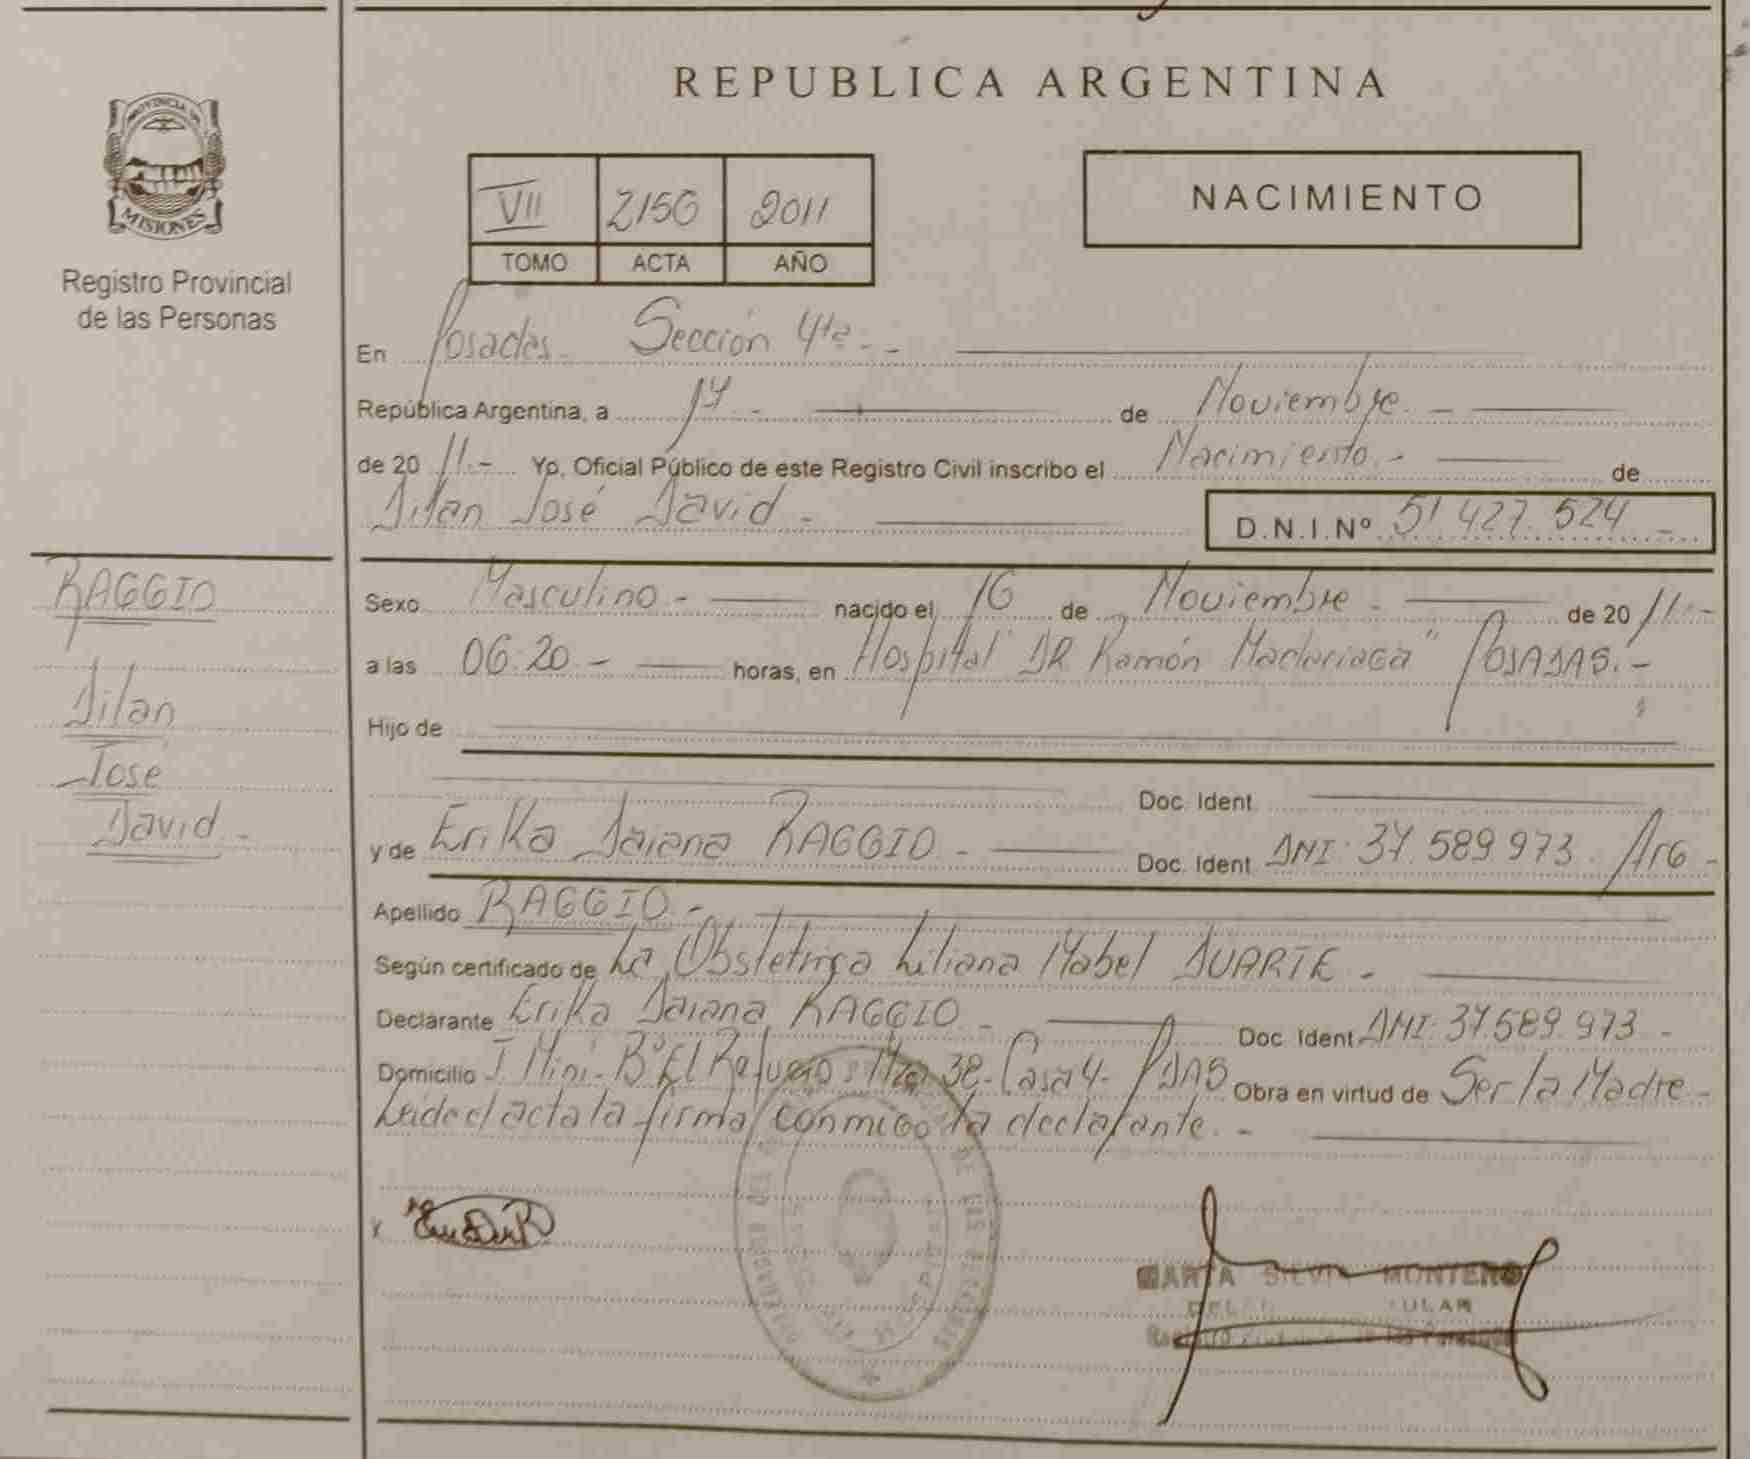 REPUBLICA ARGENTINA
PROVINCIA DE
MISIONES
Registro Provincial
de las Personas
VII 2156 2011
TOMO ACTA AÑO
NACIMIENTO
En Posadas. Sección 4ta. -
República Argentina, a 17 - de Noviembre. -
de 20 11.- Yo, Oficial Público de este Registro Civil inscribo el Nacimiento. - de
Dilan José David -
D.N.I.Nº 51.427.524 -
RAGGIO
Dilan
José
David -
Sexo Masculino - nacido el 16 de Noviembre - de 20 11.-
a las 06:20 - horas, en Hospital "DR Ramón Madariaga" POSADAS.-
Hijo de
Doc. Ident
y de Erika Daiana RAGGIO - Doc. Ident DNI: 37.589.973. Arg -
Apellido RAGGIO -
Según certificado de La Obstetriga Liliana Mabel DUARTE -
Declarante Erika Daiana RAGGIO - Doc. Ident DNI: 37.589.973 -
Domicilio Bº El Refugio Mza 38- Casa 4- PDAS Obra en virtud de Ser la Madre -
Leida el acta la firma conmigo la declarante. -
x
MARTA SILVIA MONTERO